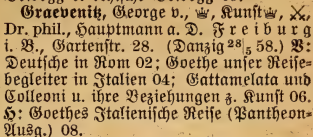 Graevenitz, George v., ♕, Kunst♕, ⚔,
Dr. phil., Hauptmann a. D. Freiburg
i. B., Gartenstr. 28. (Danzig 28/5 58.) V:
Deutsche in Rom 02; Goethe unser Reise-
begleiter in Italien 04; Gattamelata und
Colleoni u. ihre Beziehungen z. Kunst 06.
H: Goethes Italienische Reise (Pantheon-
Ausg.) 08.